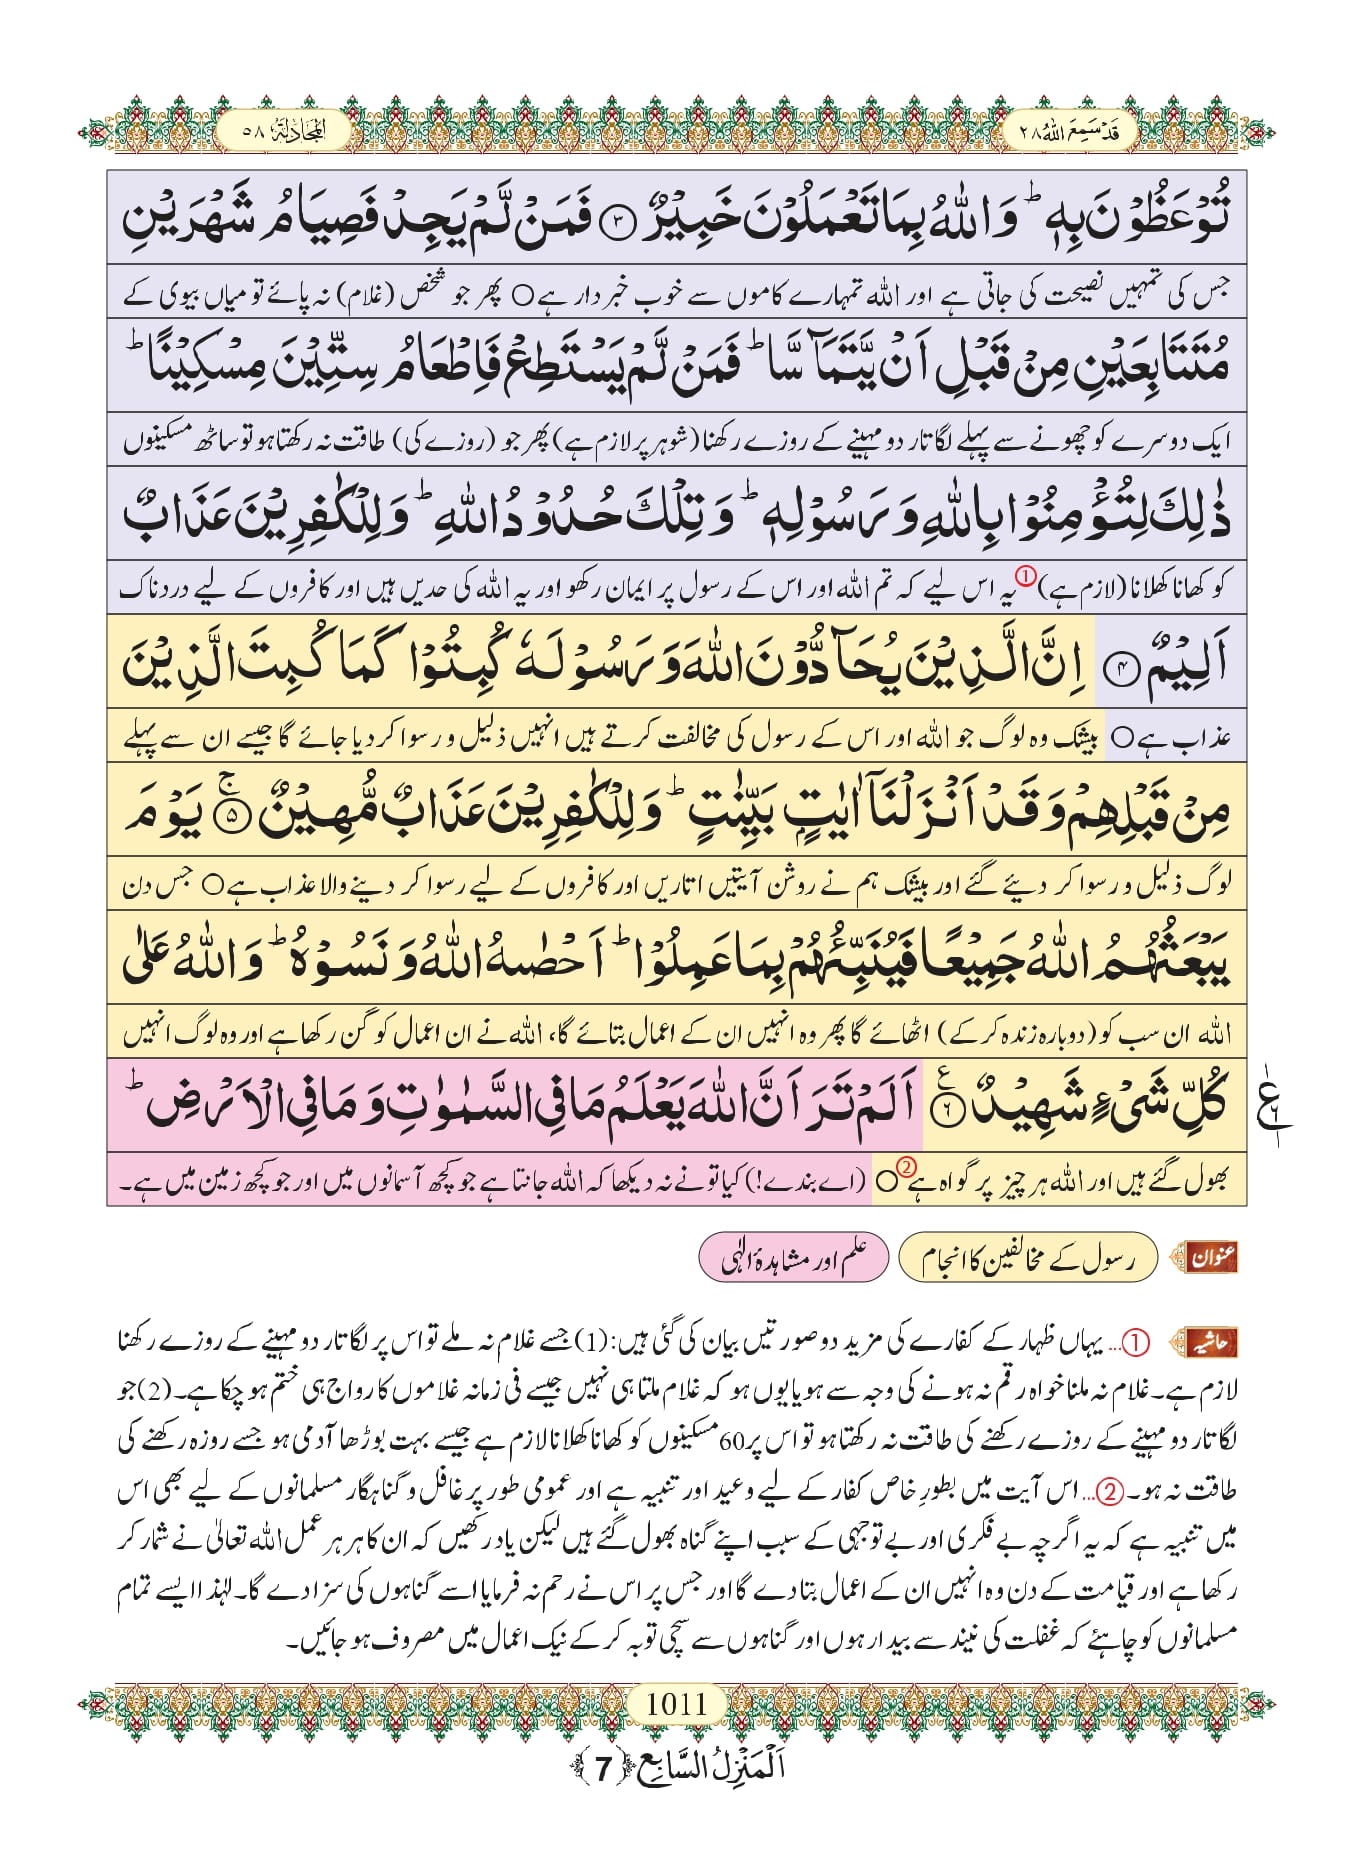 قَدۡ سَمِعَ اللہُ ۲۸
المجادلۃ ۵۸
تُوۡعَظُوۡنَ بِہٖ ؕ وَاللّٰہُ بِمَا تَعْمَلُوۡنَ خَبِیۡرٌ ﴿۳﴾ فَمَنۡ لَّمْ یَجِدْ فَصِیَامُ شَہۡرَیۡنِ
جس کی تمہیں نصیحت کی جاتی ہے اور اللہ تمہارے کاموں سے خوب خبردار ہے○ پھر جو شخص (غلام) نہ پائے تو میاں بیوی کے
مُتَتَابِعَیۡنِ مِنۡ قَبْلِ اَنۡ یَّتَمَآسَّا ؕ فَمَنۡ لَّمْ یَسْتَطِعْ فَاِطْعَامُ سِتِّیۡنَ مِسْکِیۡنًا ؕ
ایک دوسرے کو چھونے سے پہلے لگاتار دو مہینے کے روزے رکھنا (شوہر پر لازم ہے) پھر جو (روزے کی) طاقت نہ رکھتا ہو تو ساٹھ مسکینوں
ذٰلِکَ لِتُؤْمِنُوۡا بِاللّٰہِ وَ رَسُوۡلِہٖ ؕ وَ تِلْکَ حُدُوۡدُ اللّٰہِ ؕ وَ لِلْکٰفِرِیۡنَ عَذَابٌ
کو کھانا کھلانا (لازم ہے)① یہ اس لیے کہ تم اللہ اور اس کے رسول پر ایمان رکھو اور یہ اللہ کی حدیں ہیں اور کافروں کے لیے دردناک
اَلِیۡمٌ ﴿۴﴾ اِنَّ الَّذِیۡنَ یُحَآدُّوۡنَ اللّٰہَ وَ رَسُوۡلَہٗ کُبِتُوۡا کَمَا کُبِتَ الَّذِیۡنَ
عذاب ہے○ بیشک وہ لوگ جو اللہ اور اس کے رسول کی مخالفت کرتے ہیں انہیں ذلیل و رسوا کردیا جائے گا جیسے ان سے پہلے
مِنۡ قَبْلِہِمْ وَ قَدْ اَنۡزَلْنَاۤ اٰیٰتٍۭ بَیِّنٰتٍ ؕ وَ لِلْکٰفِرِیۡنَ عَذَابٌ مُّہِیۡنٌ ۚ﴿۵﴾ یَوْمَ
لوگ ذلیل و رسوا کر دیئے گئے اور بیشک ہم نے روشن آیتیں اتاریں اور کافروں کے لیے رسوا کر دینے والا عذاب ہے○ جس دن
یَبْعَثُہُمُ اللّٰہُ جَمِیۡعًا فَیُنَبِّئُہُمۡ بِمَا عَمِلُوۡا ؕ اَحْصٰىہُ اللّٰہُ وَ نَسُوۡہُ ؕ وَ اللّٰہُ عَلٰی
اللہ ان سب کو (دوبارہ زندہ کرکے) اٹھائے گا پھر وہ انہیں ان کے اعمال بتائے گا، اللہ نے ان اعمال کو گن رکھا ہے اور وہ لوگ انہیں
کُلِّ شَیۡءٍ شَہِیۡدٌ ٪﴿۶﴾ اَلَمْ تَرَ اَنَّ اللّٰہَ یَعْلَمُ مَا فِی السَّمٰوٰتِ وَ مَا فِی الْاَرْضِ ؕ
بھول گئے ہیں اور اللہ ہر چیز پر گواہ ہے②○ (اے بندے!) کیا تو نے نہ دیکھا کہ اللہ جانتا ہے جو کچھ آسمانوں میں اور جو کچھ زمین میں ہے۔
عنوان رسول کے مخالفین کا انجام علم اور مشاہدۂ الٰہی
حاشیہ ①... یہاں ظہار کے کفارے کی مزید دو صورتیں بیان کی گئی ہیں: (1) جسے غلام نہ ملے تو اس پر لگاتار دو مہینے کے روزے رکھنا
لازم ہے۔ غلام نہ ملنا خواہ رقم نہ ہونے کی وجہ سے ہو یا یوں ہو کہ غلام ملتا ہی نہیں جیسے فی زمانہ غلاموں کا رواج ہی ختم ہو چکا ہے۔ (2) جو
لگاتار دو مہینے کے روزے رکھنے کی طاقت نہ رکھتا ہو تو اس پر 60 مسکینوں کو کھانا کھلانا لازم ہے جیسے بہت بوڑھا آدمی ہو جسے روزہ رکھنے کی
طاقت نہ ہو۔ ②... اس آیت میں بطورِ خاص کفار کے لیے وعید اور تنبیہ ہے اور عمومی طور پر غافل و گناہگار مسلمانوں کے لیے بھی اس
میں تنبیہ ہے کہ یہ اگرچہ بے فکری اور بے توجہی کے سبب اپنے گناہ بھول گئے ہیں لیکن یاد رکھیں کہ ان کا ہر ہر عمل اللہ تعالیٰ نے شمار کر
رکھا ہے اور قیامت کے دن وہ انہیں ان کے اعمال بتا دے گا اور جس پر اس نے رحم نہ فرمایا اسے گناہوں کی سزا دے گا۔ لہٰذا ایسے تمام
مسلمانوں کو چاہئے کہ غفلت کی نیند سے بیدار ہوں اور گناہوں سے سچی توبہ کر کے نیک اعمال میں مصروف ہو جائیں۔
1011
اَلْمَنْزِلُ السَّابِع ﴿7﴾